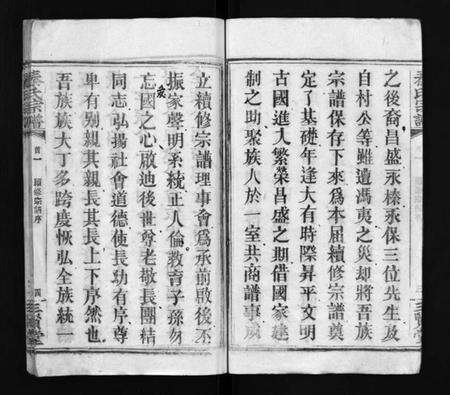 之後裔昌盛承榛承保三位先生及
自村公等雖遭馮夷之災却將吾族
宗譜保存下來爲本屆續修宗譜奠
定了基礎年逢大有時際昇平文明
古國進入繁榮昌盛之期借國家建
制之助聚族人於一室共商譜事成
立續修宗譜理事會爲承前啟後丕
振家聲明系統正人倫教育子孫勿
忘愛國之心啟迪後世尊老敬長團結
同志弘揚社會道德使長幼有序尊
卑有别親其親長其長上下序然也
吾族族大丁多跨度恢弘全族統一
氏宗譜
首一
續修宗譜序
四